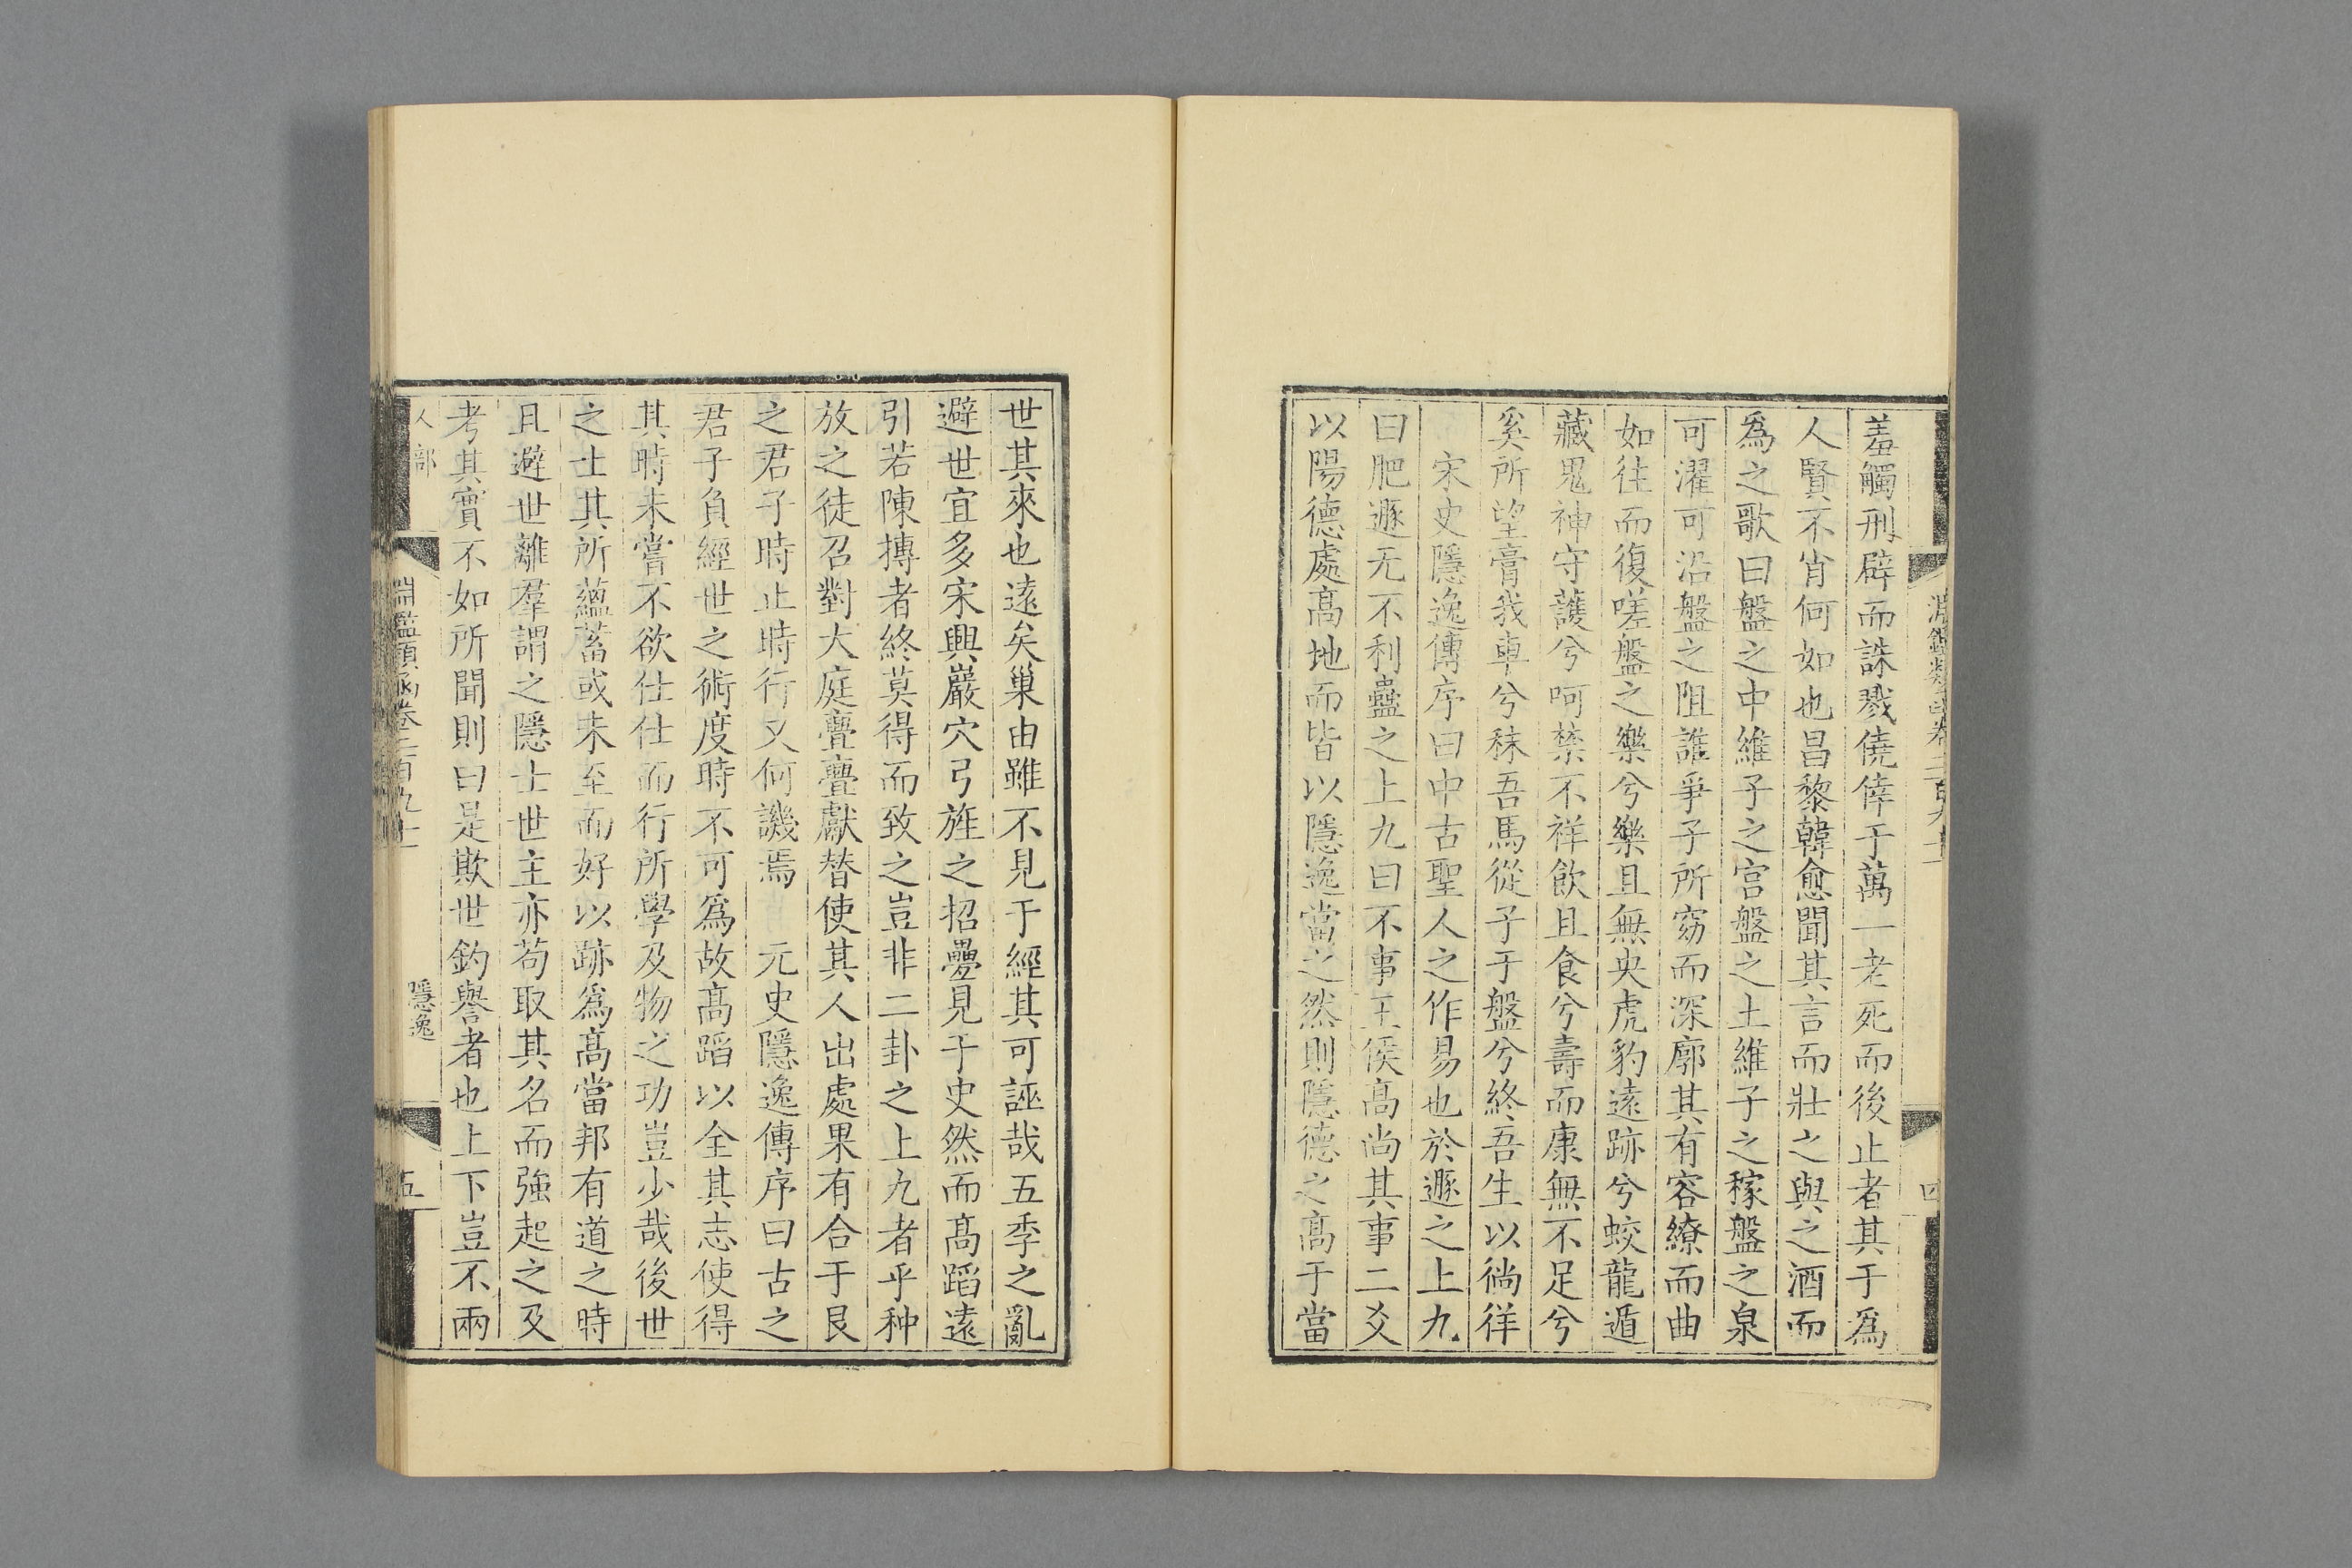 羞觸刑辟而誅戮僥倖于萬一老死而後止者其于爲
人賢不肖何如也昌黎韓愈聞其言而壯之與之酒而
爲之歌曰盤之中維子之宫盤之土維子之稼盤之泉
可濯可沿盤之阻誰爭子所窈而深廓其有容繚而曲
如往而復嗟盤之樂兮樂且無央虎豹遠跡兮蛟龍遁
藏鬼神守護兮呵禁不祥飲且食兮壽而康無不足兮
奚所望膏我車兮秣吾馬從子于盤兮終吾生以徜徉
宋史隱逸傳序曰中古聖人之作易也於遯之上九
曰肥遯无不利蠱之上九曰不事王侯髙尚其事二爻
以陽德處髙地而皆以隱逸當之然則隱德之髙于當
世其來也遠矣巢由雖不見于經其可誣哉五季之亂
避世宜多宋興巖穴弓旌之招疊見于史然而髙蹈遠
引若陳摶者終莫得而致之豈非二卦之上九者乎种
放之徒召對大庭亹亹獻替使其人出處果有合于艮
之君子時止時行又何譏焉 元史隱逸傳序曰古之
君子負經世之術度時不可爲故髙蹈以全其志使得
其時未嘗不欲仕仕而行所學及物之功豈少哉後世
之士其所蘊蓄或未至而好以跡爲髙當邦有道之時
且避世離羣謂之隱士世主亦苟取其名而強起之及
考其實不如所聞則曰是欺世釣譽者也上下豈不兩
人部
淵鑑類函卷二百九十一
隱逸
五